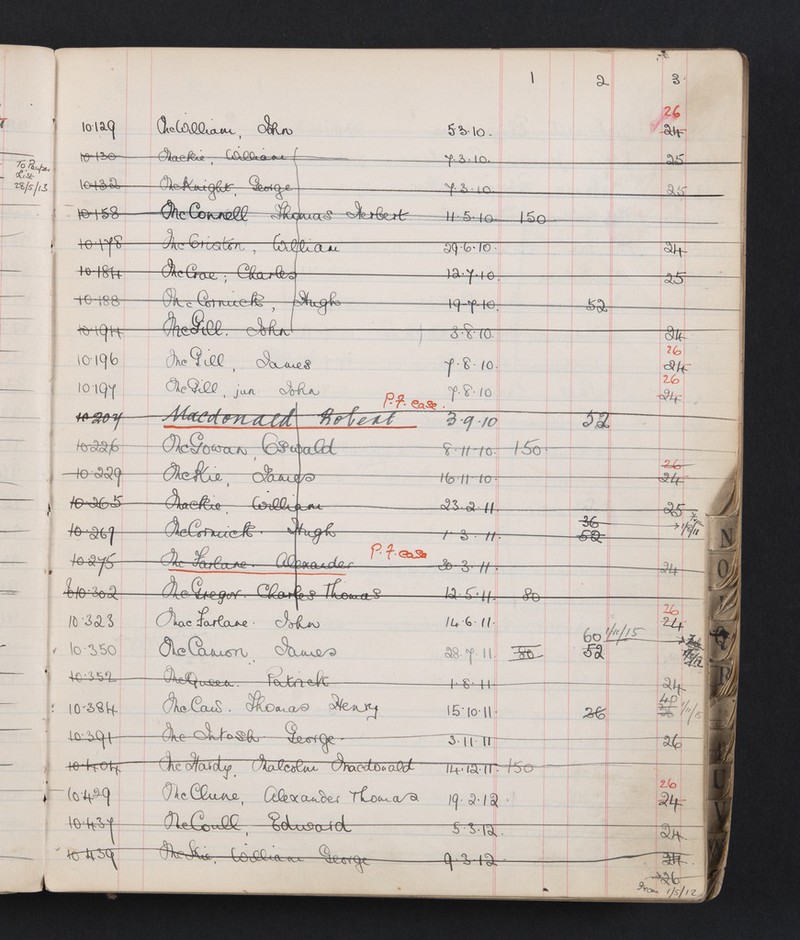 1 2 3
26
10129 McWilliam, John 5.3.10. 24
10130 Mackie, William 7.3.10. 25
To Pauper List 28/5/13
10132 McKnight, George 7.3.10. 25
10158 McConnell Thomas Herbert 11.5.10 150
10178 McCriston, William 29.6.10. 24
10184 McCrae, Charles 12.7.10. 25
10188 McCormick, Hugh 19.7.10. 52
10194 McGill. John 3.8.10. 24
26
10196 McGill, James 7.8.10. 24
26
10197 McGill, jun John 7.8.10 24
P.F. case.
10207 Macdonald Robert 3.9.10 52
10226 McGowan, Oswald 8.11.10. 150.
26
10229 McKie, James 16.11.10. 24
10265 Mackie, William 23.2.11. 25
36
10267 McCormick. Hugh 1.3.11. 52
P.F. case
10275 McFarlane. Alexander 30.3.11. 24
10302 McGregor. Charles Thomas 12.5.11. 80
26
10323 MacFarlane. John 14.6.11. 24
60 1/11/15
10350 McCamon, James 28.7.11. 80 52
10352 McQueen. Patrick 1.8.11 24
40
10384 McCaw. Thomas Henry 15.10.11. 26
10391 McIntosh George. 3.11.11 26
10404 McHardy, Malcolm Macdonald 14.12.11. 150
26
10429 McClune, Alexander Thomas 19.2.12. 24
10437 McCoull, Edward 5.3.12. 24
10439 McKie, William George 9.3.12 24
26
From 1/5/12
N
O
Q
R
U
V